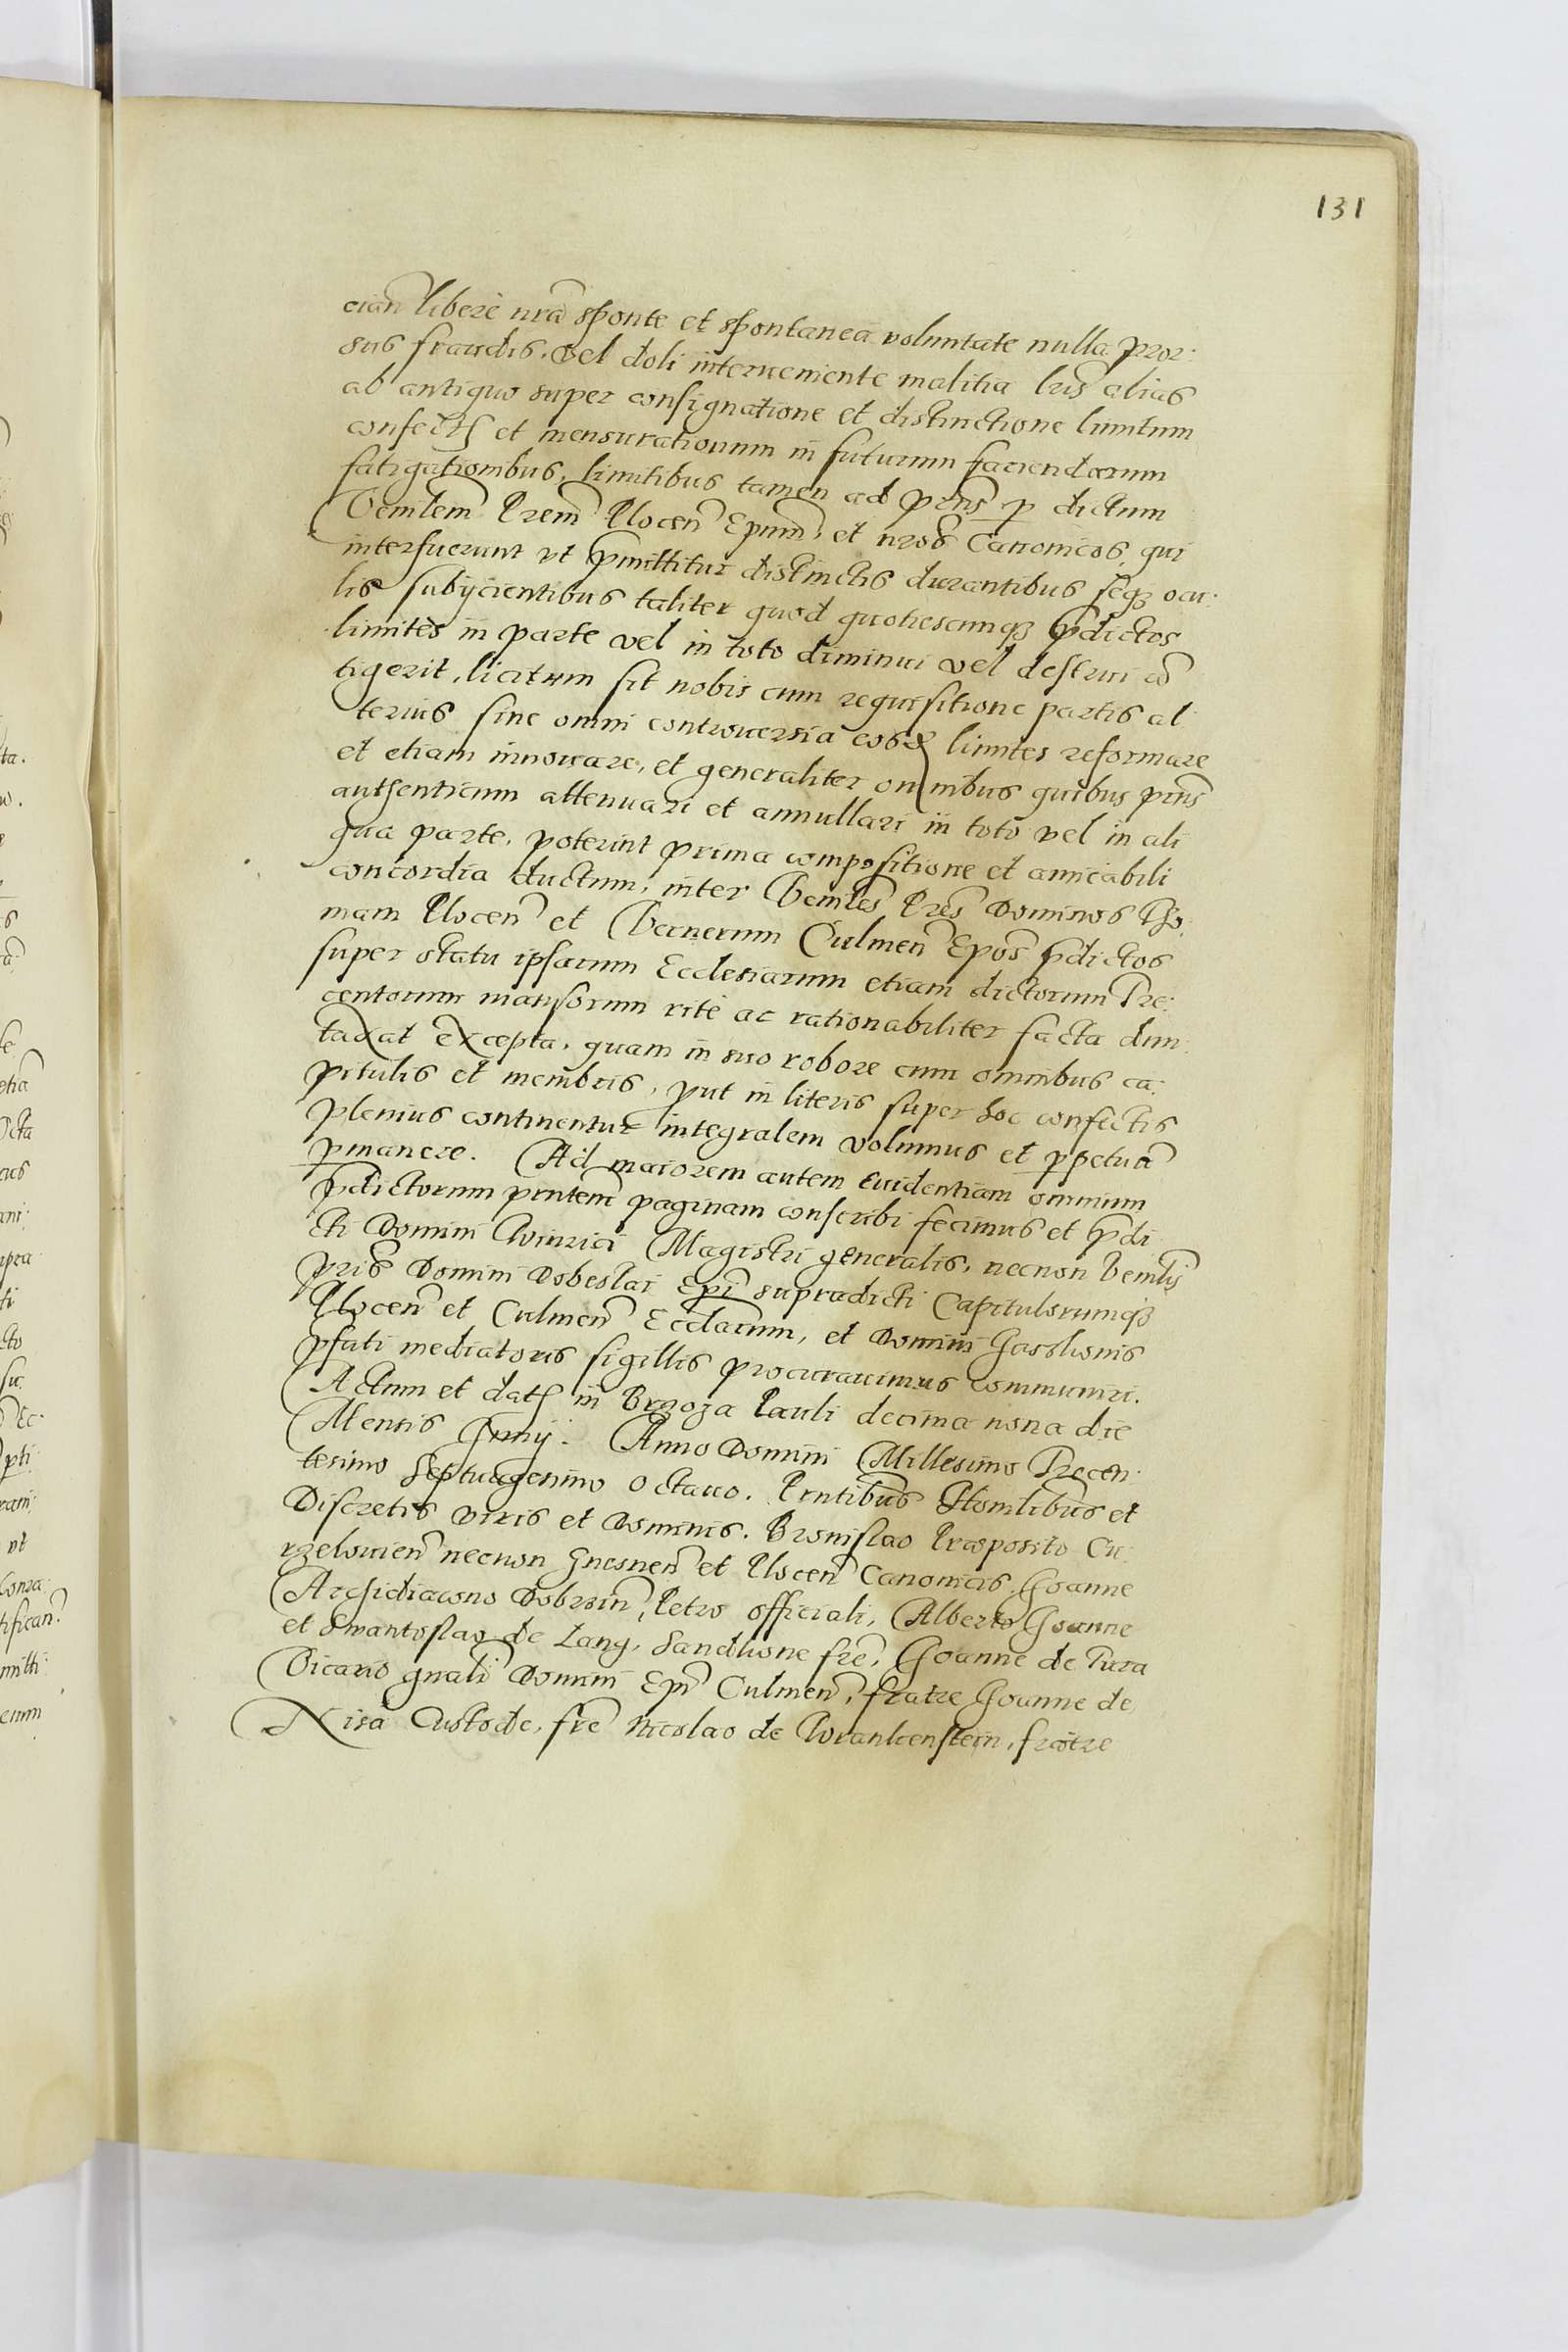 131
cian̄ liberè nrā sponte et spontanea voluntate nulla pror:
sus fraudis, vel doli interueniente malitia lrīs alias
ab antiquo super consignatione et distinctione limitum
confectis et mensurationum in futurum faciendarum
fatigationibus, limitibus tamen ad prn̄s p dictum
Venīlem Prem̄ Plocen̄ Epum̄, et nros̄ Canonicos, qui
interfuerunt vt pmittitur distinctis durantibus seq3 ocu:
lis subijcientibus taliter quod quotiescunq3 pdictos
limites in parte vel in toto diminui vel destrui cō
tigerit, licitum sit nobis cum requisitione partis al
terius sine omni controuersia eosd limites reformare
et etiam innouare, et generaliter omnibus quibus prn̄s
authenticum attenuari et annullari in toto vel in ali
qua parte, poterint prima compositione et amicabili
concordia ductum, inter Venīles Pres̄ Dominos Tho:
mam Plocen̄ et Vernerum Culmen̄ Epos̄ pdictos
super statu ipsarum Ecclesiarum etiam dictorum Tre:
centorum mansorum ritè ac rationabiliter facta dun:
taxat excepta, quam in suo robore cum omnibus ca:
pitulis et membris, put in literis super hoc confectis
plenius continentur integralem volumus et ppetuā
pmanere. Ad maiorem autem euidentiam omnium
pdictorum pn̄tem paginam conscribi fecimus et pdi
cti Domini Winrici Magistri generalis, necnon Venīlis
pris̄ Domini Dobeslai Epī supradicti Capitulorumq3
Plocen̄ et Culmen̄ Eccl̄arum, et Domini Hasslonis
pfati mediatoris sigillis procurauimus communiri.
Actum et dat in Brzoza Pauli decima nona die
Mensis Junij. Anno Domini Millesimo Trecen:
tesimo Septuagesimo octauo. Prn̄tibus Honīlibus et
Discretis viris et Dominis. Bronislao Præposito Cu:
rzelouien̄ necnon Gnesnen̄ et Plocen̄ Canonicis, Joanne
Archidiacono Dobrzin̄, Petro officiali, Alberto Joanne
et Swantoslao de Lang, Sandkone frē, Joanne de Tura
Vicario gn̄ali Domini Epī Culmen̄, fratre Joanne de
Nisa Custode, frē Nicolao de Wrankenstein, fratre